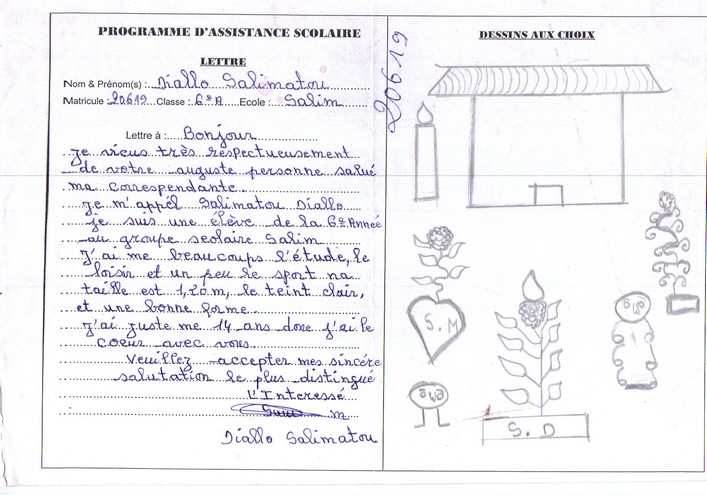 PROGRAMME D'ASSISTANCE SCOLAIRE
LETTRE
Nom & Prénom(s) : Diallo Salimatou
Matricule : 20619 Classe : 6e A Ecole : Salim
Lettre à : Bonjour
je vieus très respectueusement
de votre auguste personne salué
ma correspondante
Je m'appél Salimatou Diallo
je suis une élève de la 6e Année
au groupe scolaire Salim
J'ai me beaucoups l'étude, le
loisir et un peu le sport na
taille est 1,20m, le teint clair,
et une bonne forme
J'ai juste me 14 ans donc j'ai le
coeur avec vous
Veuillez accepter mes sincére
salutation le plus distingué
L'Interessé
m
Diallo Salimatou
20619
DESSINS AUX CHOIX
S.M
S.D